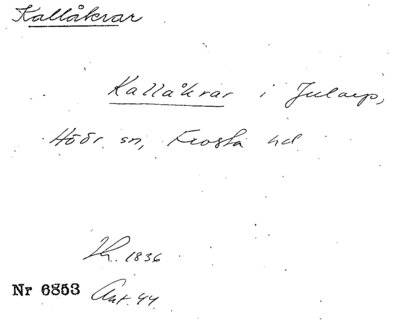 Kallåkrar
Kallåkrar i Jularp,
Höör sn, Frosta hd
Lh. 1836
Nr 6353 Akt. 44.